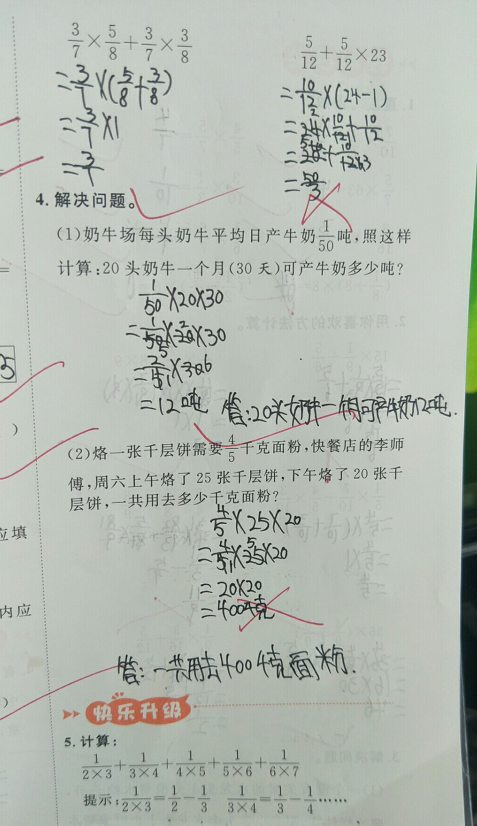 3/7×5/8+3/7×3/8
5/12+5/12×23
=3/7×(5/8+3/8)
=3/7×1
=3/7
=10/12×(24-1)
=24×10/12+10/12
=50/3
4.解决问题。
(1)奶牛场每头奶牛平均日产牛奶1/50吨,照这样
计算:20头奶牛一个月(30天)可产牛奶多少吨?
1/50×20×30
=1/50×20×30
=2/5×30
=12吨
答:20头奶牛一个月可产牛奶12吨.
(2)烙一张千层饼需要4/5千克面粉,快餐店的李师
傅,周六上午烙了25张千层饼,下午烙了20张千
层饼,一共用去多少千克面粉?
4/5×25×20
=4/5×25×20
=20×20
=400千克
答:一共用去400千克面粉.
快乐升级
5.计算:
1/(2×3)+1/(3×4)+1/(4×5)+1/(5×6)+1/(6×7)
提示:1/(2×3)=1/2-1/3 1/(3×4)=1/3-1/4……
应填
内应